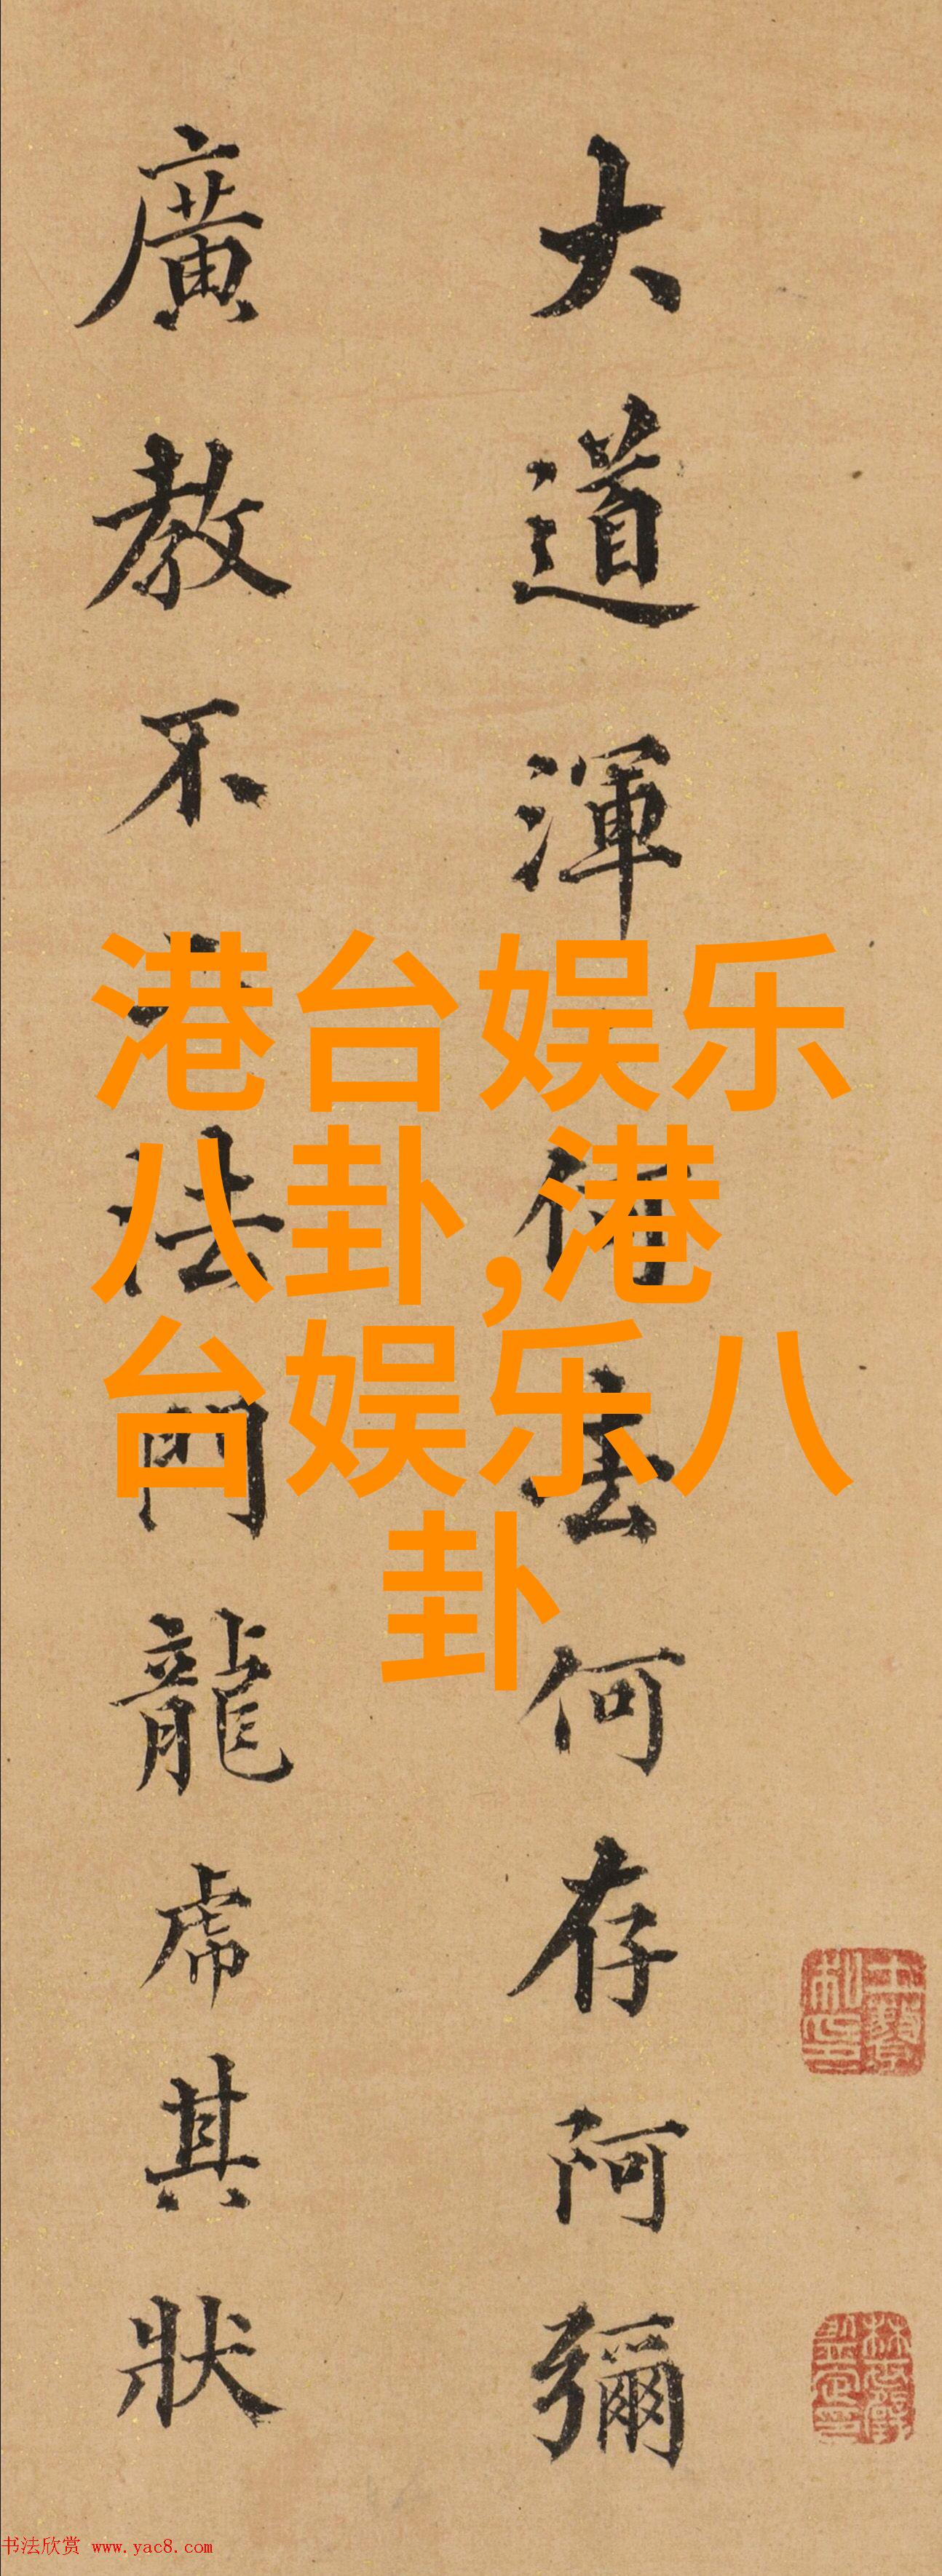 大道渾何存阿彌
廣教不法門龍虎其狀
港台娱乐
八卦,港
台娱乐八
卦
书法欣赏 www.yac8.com